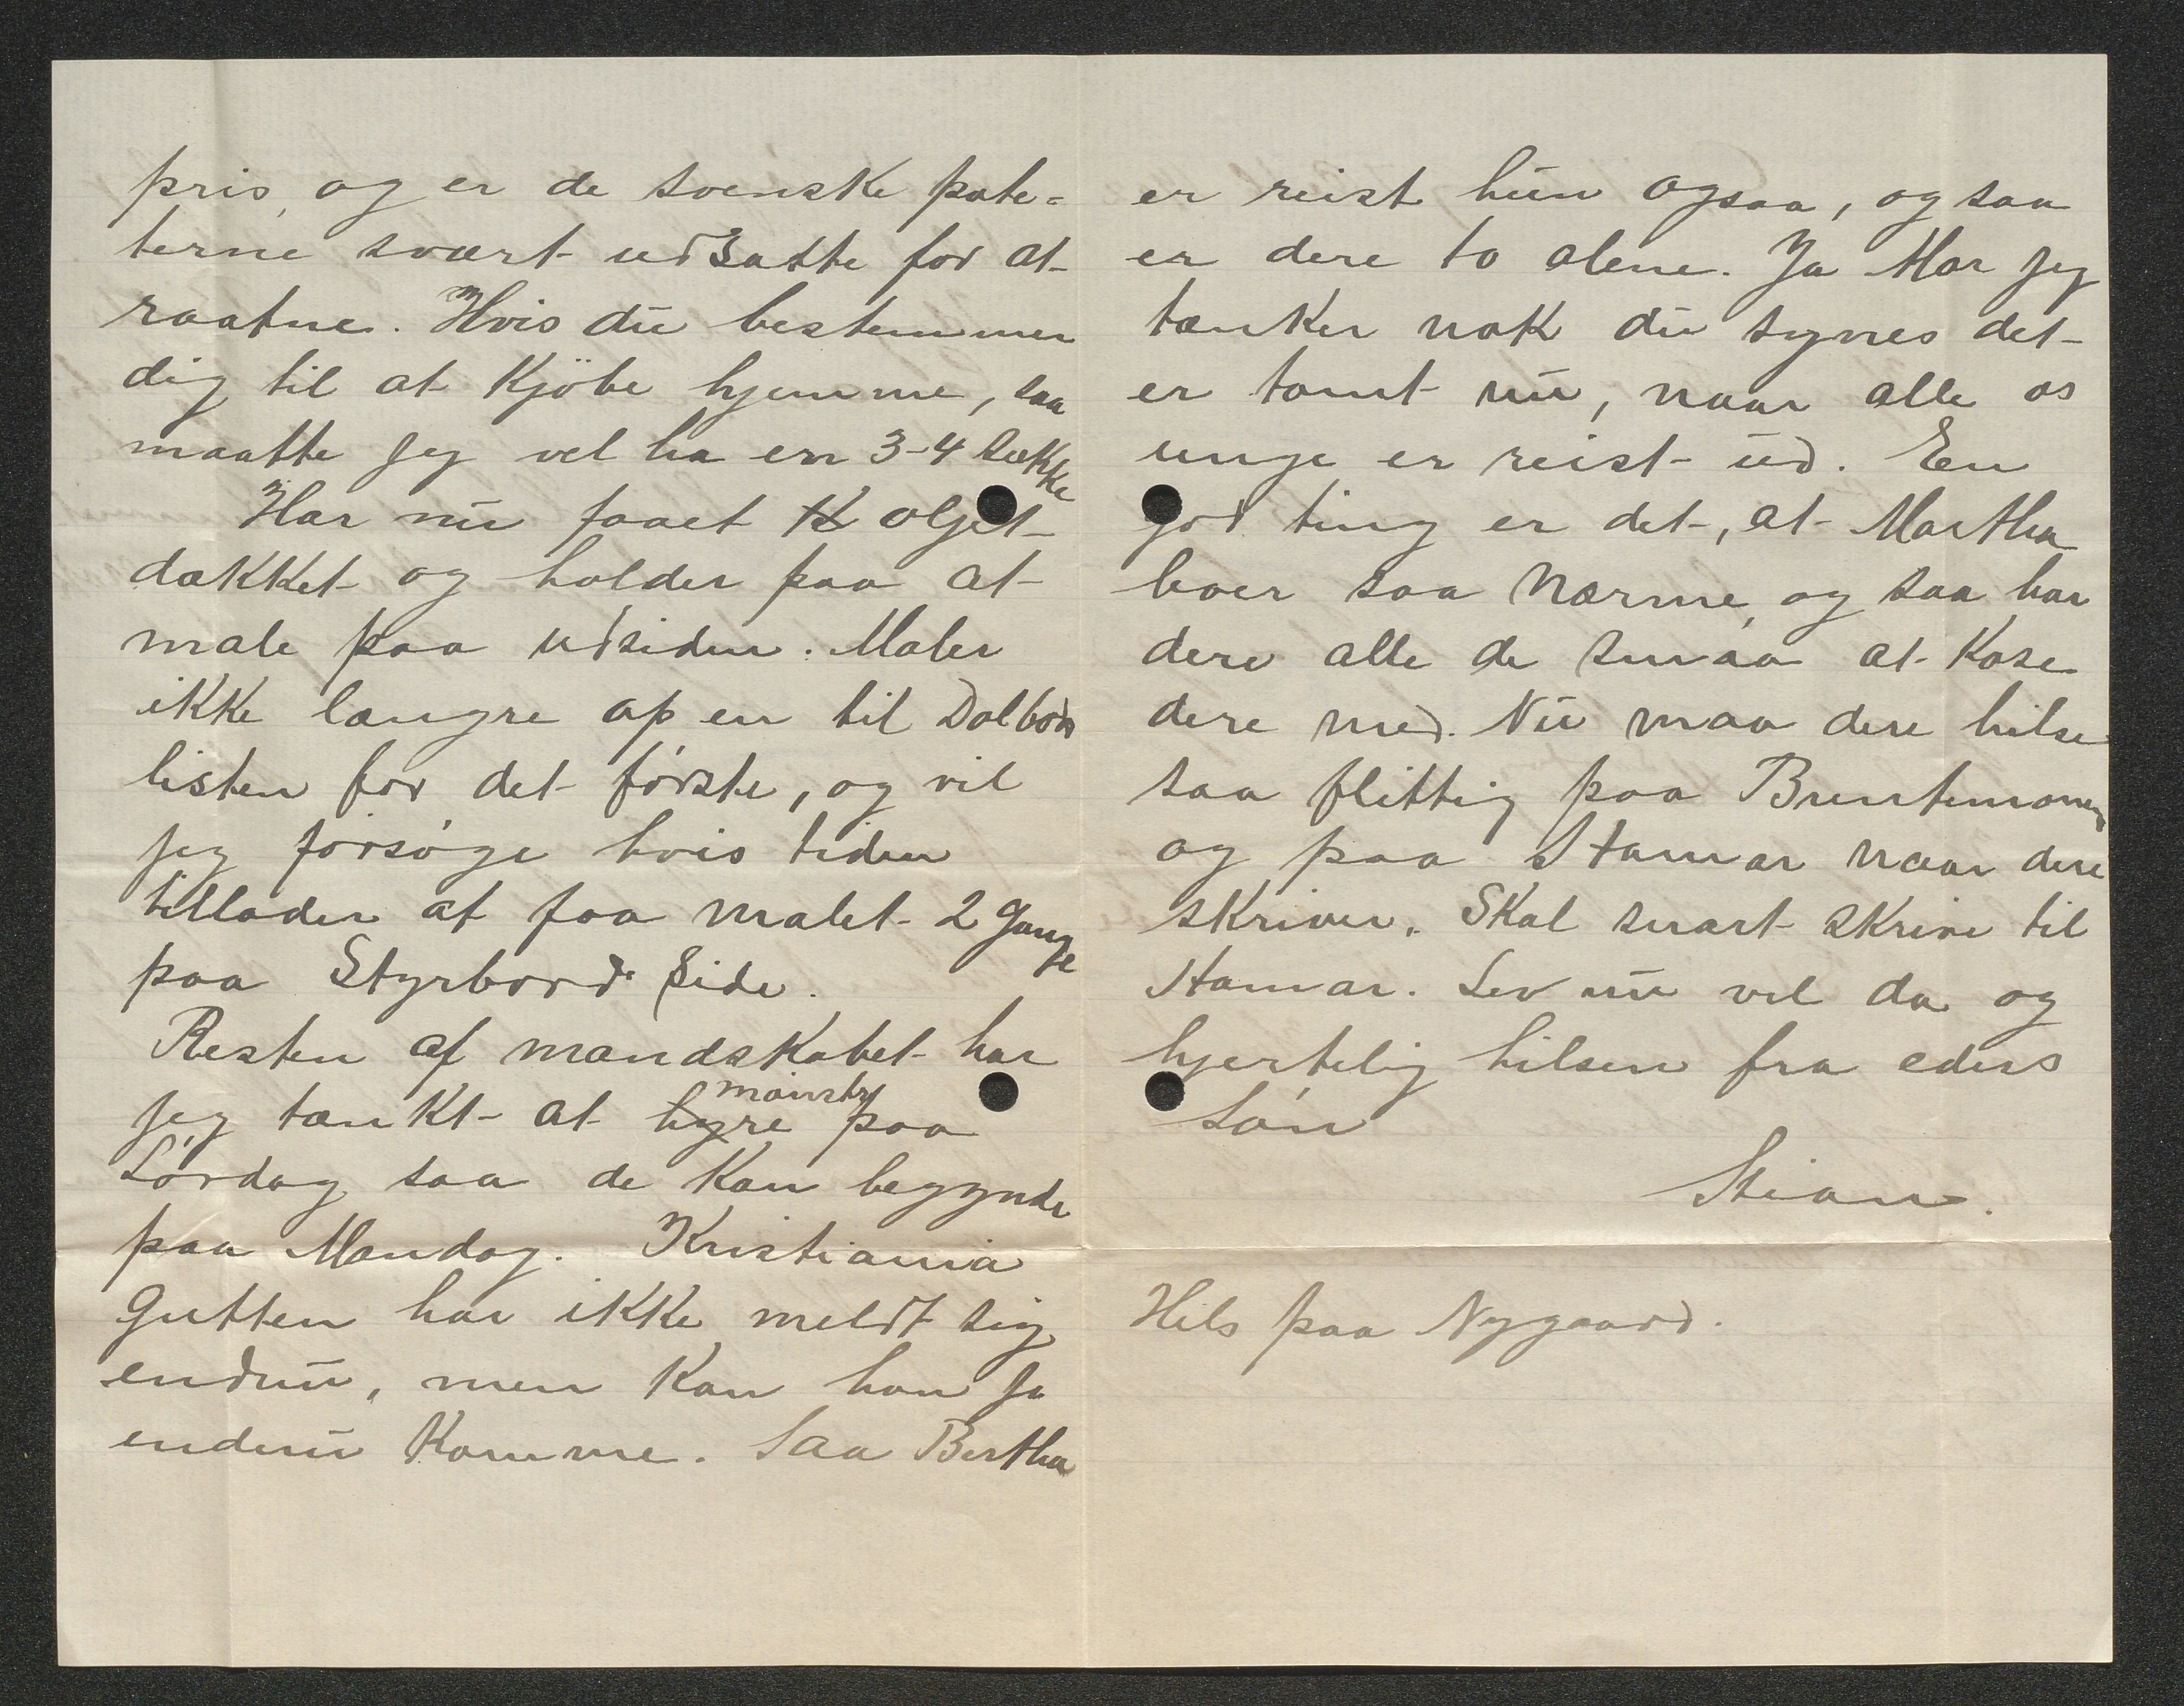 pris, og er de svenske pote=
terne svært udsatte for at
raatne. Hvis du bestemmer
dig til at Kjöbe hjemme, saa
maatte jeg vel ha en 3-4 Sække
Har nu faaet oljet
dækket og holder paa at
male paa udsiden. Maler
ikke længre op en til
listen for det første, og vil
jeg forsøge hvis tiden
tillader at faa malet 2 Gange
paa Styrbord Side.
Resten af mandskabet har
jeg tænkt at hyre mønstre paa
Lørdag saa de Kan begynde
paa Mandag. Kristiania
Gutten har ikke meldt sig
endnu, men Kan han Ja
endnu Komme. Saa Bertha
er reist hun ogsaa, og saa
er dere to alene. Ja Mor jeg
tænker nok du synes det
er tomt nu, naar alle os
unge er reist ud. En
god ting er det, at Martha
boer saa Nærme, og saa har
dere alle de smaa at Kose
dere med. Nu maa dere hilse
saa flittig paa
og paa Hamar naar dere
skriver. Skal snart skrive til
Hamar. Lev nu vel da og
hjertelig hilsen fra eders
Søn
Stian.
Hils paa Nygaard.